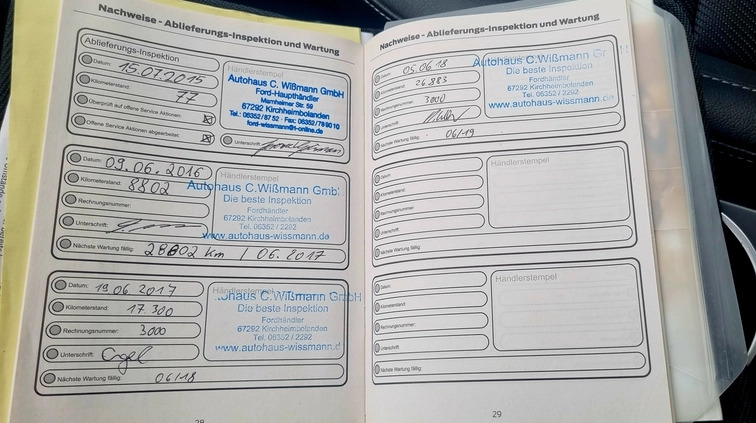 Nachweise - Ablieferungs-Inspektion und Wartung
Ablieferungs-Inspektion
Datum: 15.07.2015
Kilometerstand: 77
Überprüft auf offene Service Aktionen:
Offene Service Aktionen abgearbeitet:
Händlerstempel
Autohaus C. Wißmann GmbH
Ford-Haupthändler
Marnheimer Str. 59
67292 Kirchheimbolanden
Tel.: 06352/87 52 · Fax: 06352/78 90 10
ford-wissmann@t-online.de
Unterschrift:
Datum: 09.06.2016
Kilometerstand: 8802
Rechnungsnummer:
Unterschrift:
Nächste Wartung fällig: 28802 km / 06.2017
Händlerstempel
Autohaus C.Wißmann GmbH
Die beste Inspektion
Fordhändler
67292 Kirchheimbolanden
Tel. 06352 / 2292
www.autohaus-wissmann.de
Datum: 19 06 2017
Kilometerstand: 17.300
Rechnungsnummer: 3000
Unterschrift: Engel
Nächste Wartung fällig: 06/18
Händlerstempel
Autohaus C.Wißmann GmbH
Die beste Inspektion
Fordhändler
67292 Kirchheimbolanden
Tel. 06352 / 2292
www.autohaus-wissmann.d
28
Nachweise - Ablieferungs-Inspektion und Wartung
Datum: 05.06.18
Kilometerstand: 26.883
Rechnungsnummer: 3000
Unterschrift:
Nächste Wartung fällig: 06/19
Autohaus C.Wißmann Gr
Die beste Inspektion
Fordhändler
67292 Kirchheimbolanden
Tel. 06352 / 2292
www.autohaus-wissmann.de
Datum:
Kilometerstand:
Rechnungsnummer:
Unterschrift:
Nächste Wartung fällig:
Händlerstempel
Datum:
Kilometerstand:
Rechnungsnummer:
Unterschrift:
Nächste Wartung fällig:
Händlerstempel
29